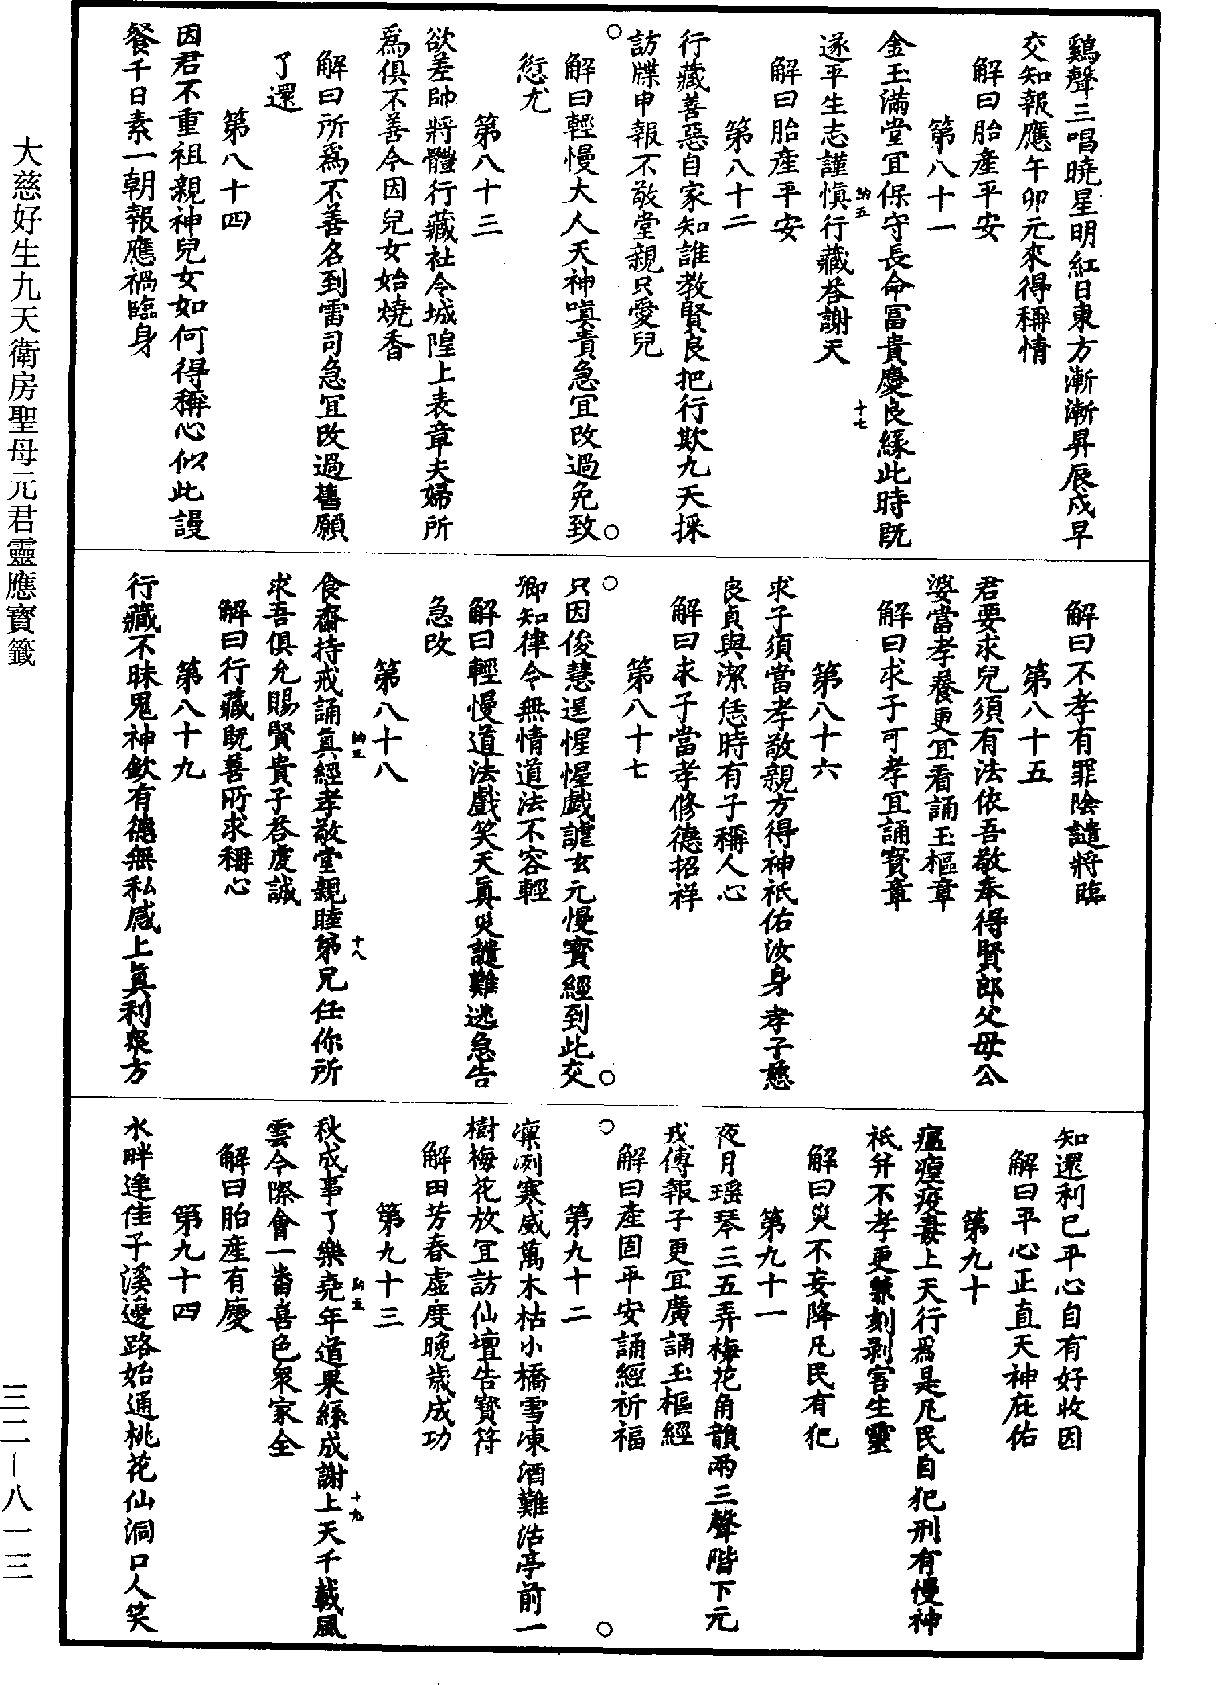 鷄聲三唱曉星明紅日東方漸漸昇辰戌早
交知報應午卯元來得稱情
解曰胎產平安
第八十一
金玉滿堂宜保守長命冨貴慶良緣此時既
遂平生志謹慎行藏荅謝天
納五
十七
解曰胎產平安
第八十二
行藏善惡自家知誰教賢良把行欺九天採
訪牒申報不敬堂親只愛兒
解曰輕慢大人天神嗔責急宜改過免致
愆尤
第八十三
欲差帥將體行藏社令城隍上表章夫婦所
爲俱不善今因兒女始燒香
解曰所爲不善名到雷司急宜改過舊願
了還
第八十四
因君不重祖親神兒女如何得稱心似此謾
餐千日素一朝報應禍臨身
解曰不孝有罪陰譴將臨
第八十五
君要求兒須有法依吾敬奉得賢郎父母公
婆當孝養更宜看誦玉樞章
解曰求子可孝宜誦寳章
第八十六
求子須當孝敬親方得神祇佑汝身孝子慈
良貞與潔恁時有子稱人心
解曰求子當孝修德招祥
第八十七
只因俊慧逞惺惺戲謔玄元慢寳經到此交
卿知律令無情道法不容輕
解曰輕慢道法戲笑天真災譴難逃急告
急改
第八十八
食齋持戒誦真經孝敬堂親睦弟兄任你所
求吾俱允賜賢貴子荅虔誠
納五
十八
解曰行藏既善所求稱心
第八十九
行藏不昧鬼神欽有德無私感上真利衆方
知還利已平心自有好收因
解曰平心正直天神庇佑
第九十
瘟㾮疫毒上天行爲是凡民自犯刑有慢神
祇并不孝更兼刻剥害生靈
解曰災不妄降凡民有犯
第九十一
夜月瑶琴三五弄梅花角韻兩三聲階下元
戎傅報子更宜廣誦玉樞經
解曰產固平安誦經祈福
第九十二
凜冽寒威萬木枯小橋雪凍酒難沽亭前一
樹梅花放宜訪仙壇告寳符
解田芳春虛度晚歲成功
第九十三
秋成事了樂堯年道果緣成謝上天千載風
雲今際會一畨喜色衆家全
納五
十九
解曰胎產有慶
第九十四
水畔逢佳子溪邊路始通桃花仙洞口人笑
大慈好生九天衛房聖母元君靈應寶籤
三二－八一三